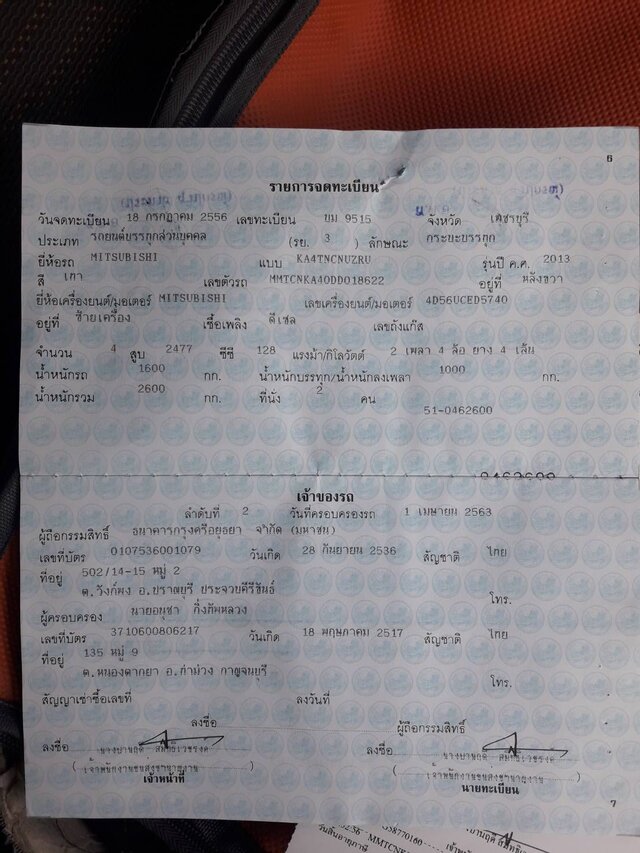 6
รายการจดทะเบียน
วันจดทะเบียน 18 กรกฎาคม 2556 เลขทะเบียน บม 9515 จังหวัด เพชรบุรี
ประเภท รถยนต์บรรทุกส่วนบุคคล (รย. 3 ) ลักษณะ กระบะบรรทุก
ยี่ห้อรถ MITSUBISHI แบบ KA4TNCNUZRU รุ่นปี ค.ศ. 2013
สี เทา เลขตัวรถ MMTCNKA40DD018622 อยู่ที่ หลังขวา
ยี่ห้อเครื่องยนต์/มอเตอร์ MITSUBISHI เลขเครื่องยนต์/มอเตอร์ 4D56UCED5740
อยู่ที่ ซ้ายเครื่อง เชื้อเพลิง ดีเซล เลขถังแก๊ส
จำนวน 4 สูบ 2477 ซีซี 128 แรงม้า/กิโลวัตต์ 2 เพลา 4 ล้อ ยาง 4 เส้น
น้ำหนักรถ 1600 กก. น้ำหนักบรรทุก/น้ำหนักลงเพลา 1000 กก.
น้ำหนักรวม 2600 กก. ที่นั่ง 2 คน
51-0462600
เจ้าของรถ
ลำดับที่ 2 วันที่ครอบครองรถ 1 เมษายน 2563
ผู้ถือกรรมสิทธิ์ ธนาคารกรุงศรีอยุธยา จำกัด (มหาชน)
เลขที่บัตร 0107536001079 วันเกิด 28 กันยายน 2536 สัญชาติ ไทย
ที่อยู่ 502/14-15 หมู่ 2
ต.วังก์พง อ.ปราณบุรี ประจวบคีรีขันธ์ โทร.
ผู้ครอบครอง นายอนุชา กิ่งกัพหลวง
เลขที่บัตร 3710600806217 วันเกิด 18 พฤษภาคม 2517 สัญชาติ ไทย
ที่อยู่ 135 หมู่ 9
ต.หนองตากยา อ.ท่าม่วง กาญจนบุรี โทร.
สัญญาเช่าซื้อเลขที่ ลงวันที่
ลงชื่อ ผู้ถือกรรมสิทธิ์
ลงชื่อ ลงชื่อ
( เจ้าพนักงานขนส่งชำนาญงาน ) ( เจ้าพนักงานขนส่งชำนาญงาน )
เจ้าหน้าที่ นายทะเบียน
7